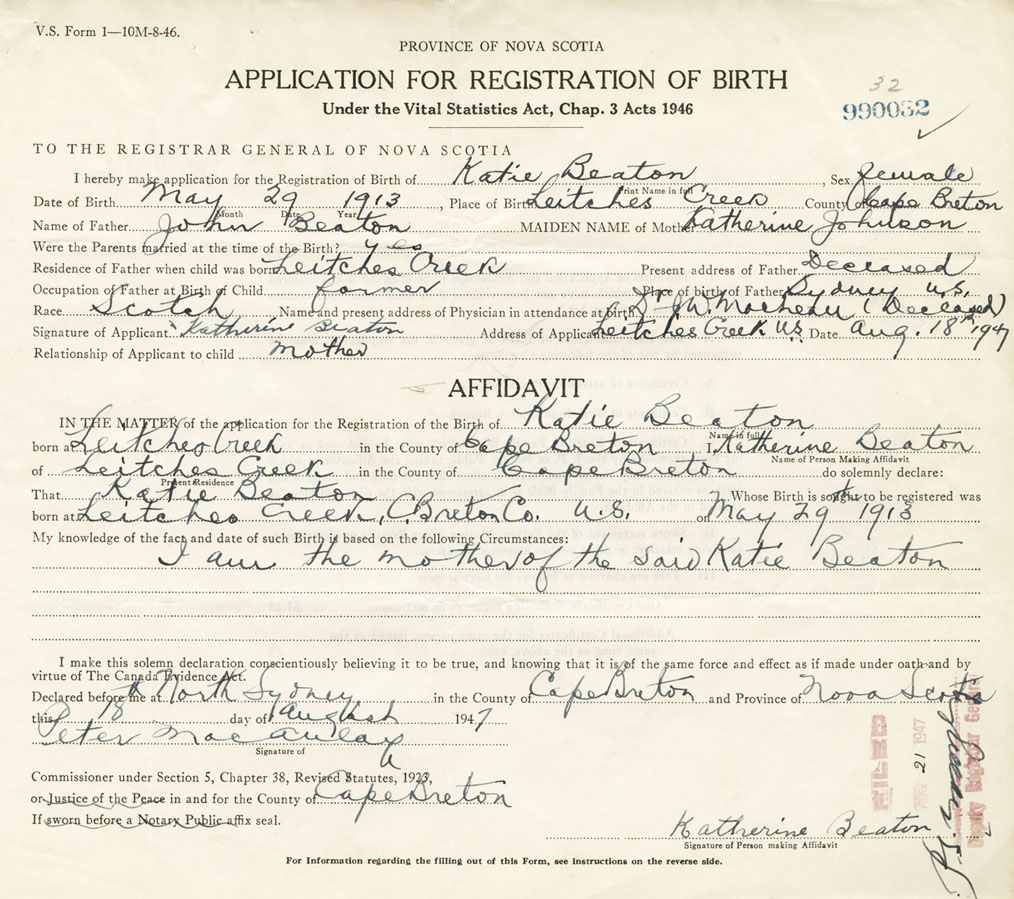 V.S. Form 1—10M-8-46.
PROVINCE OF NOVA SCOTIA
APPLICATION FOR REGISTRATION OF BIRTH
Under the Vital Statistics Act, Chap. 3 Acts 1946
32
990032
TO THE REGISTRAR GENERAL OF NOVA SCOTIA
I hereby make application for the Registration of Birth of Katie Beaton, Sex female
Print Name in full
Date of Birth May 29 1913, Place of Birth Leitches Creek County of Cape Breton
Month Date Year
Name of Father John Beaton MAIDEN NAME of Mother Katherine Johnson
Were the Parents married at the time of the Birth? yes
Residence of Father when child was born Leitches Creek Present address of Father Deceased
Occupation of Father at Birth of Child farmer Place of birth of Father Sydney
Race Scotch Name and present address of Physician in attendance at birth Dr. J.W. (Deceased)
Signature of Applicant Katherine Beaton Address of Applicant Leitches Creek Date Aug. 18th 1947
Relationship of Applicant to child mother
AFFIDAVIT
IN THE MATTER of the application for the Registration of the Birth of Katie Beaton
Name in full
born at Leitches Creek in the County of Cape Breton I, Katherine Beaton
Name of Person Making Affidavit
of Leitches Creek in the County of Cape Breton do solemnly declare:
Present Residence
That Katie Beaton Whose Birth is sought to be registered was
born at Leitches Creek, C. Breton Co. on May 29 1913
My knowledge of the fact and date of such Birth is based on the following Circumstances:
I am the mother of the said Katie Beaton
I make this solemn declaration conscientiously believing it to be true, and knowing that it is of the same force and effect as if made under oath and by
virtue of The Canada Evidence Act.
Declared before me at North Sydney in the County of Cape Breton and Province of Nova Scotia
this 18th day of August 1947
Peter MacAulay
Signature of
Commissioner under Section 5, Chapter 38, Revised Statutes, 1923,
or Justice of the Peace in and for the County of Cape Breton
If sworn before a Notary Public affix seal.
Katherine Beaton
Signature of Person making Affidavit
FILED
AUG 21 1947
Deputy Registrar General
For Information regarding the filling out of this Form, see instructions on the reverse side.